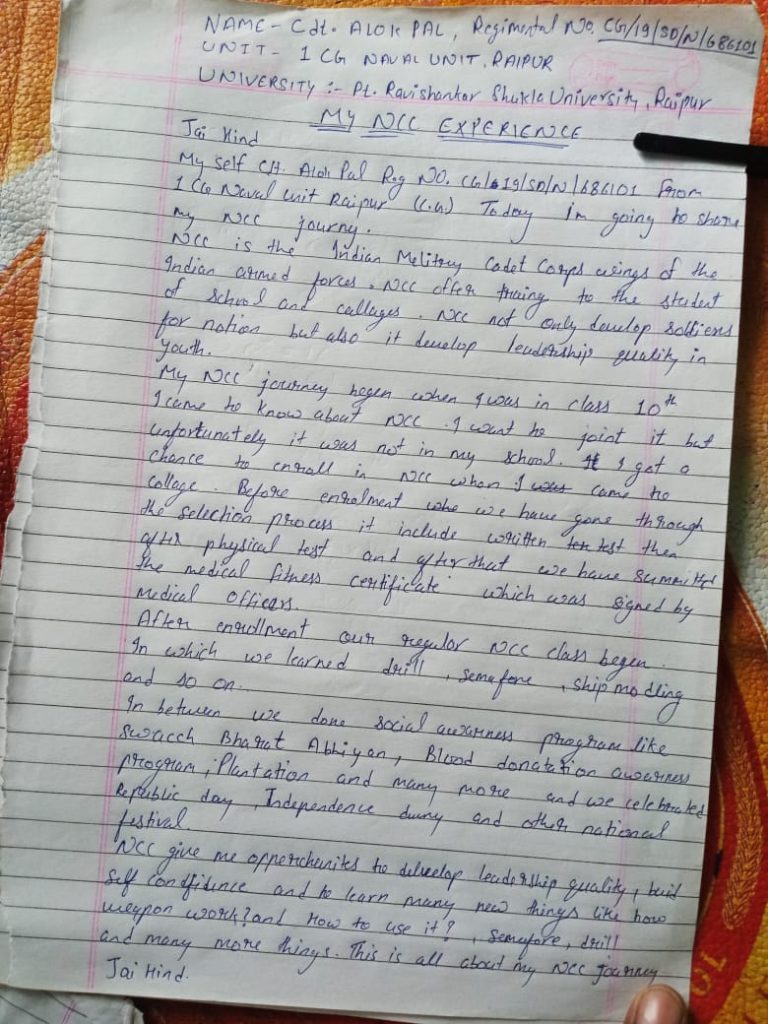 NAME - Cdt. ALOK PAL, Regimental No. CG/19/SD/N/686101
UNIT - 1 CG NAVAL UNIT, RAIPUR
UNIVERSITY :- Pt. Ravishankar Shukla University, Raipur
MY NCC EXPERIENCE
Jai Hind
My self Cdt. Alok Pal Reg NO. CG/19/SD/N/686101 From
1 CG Naval unit Raipur (C.G) Today im going to share
my NCC journy.
NCC is the Indian Melitry Cadet Corps wings of the
Indian armed forces. NCC offer traing to the student
of school and callages. NCC not only develop soldiers
for nation but also it develop leadership quality in
youth.
My NCC journey begen when I was in class 10th
I came to know about NCC. I want to joint it but
unfortunately it was not in my school. I got a
chance to enroll in NCC when I came to
collage. Before enrolment we have gone through
the selection process it include written test then
after physical test and after that we have summitted
the medical fitness certificate which was signed by
medical officers.
After enrollment our regular NCC class begen.
In which we learned drill, semafore, ship modling
and so on.
In between we done social awarness program like
Swacch Bharat Abhiyan, Blood donatation awarness
program, Plantation and many more and we celebrated
Republic day, Independence day and other national
festival.
NCC give me opperchunites to develop leadership quality, buid
self confidence and to learn many new things like how
weapon work? and How to use it?, semafore, drill
and many more things. This is all about my NCC journey
Jai Hind.